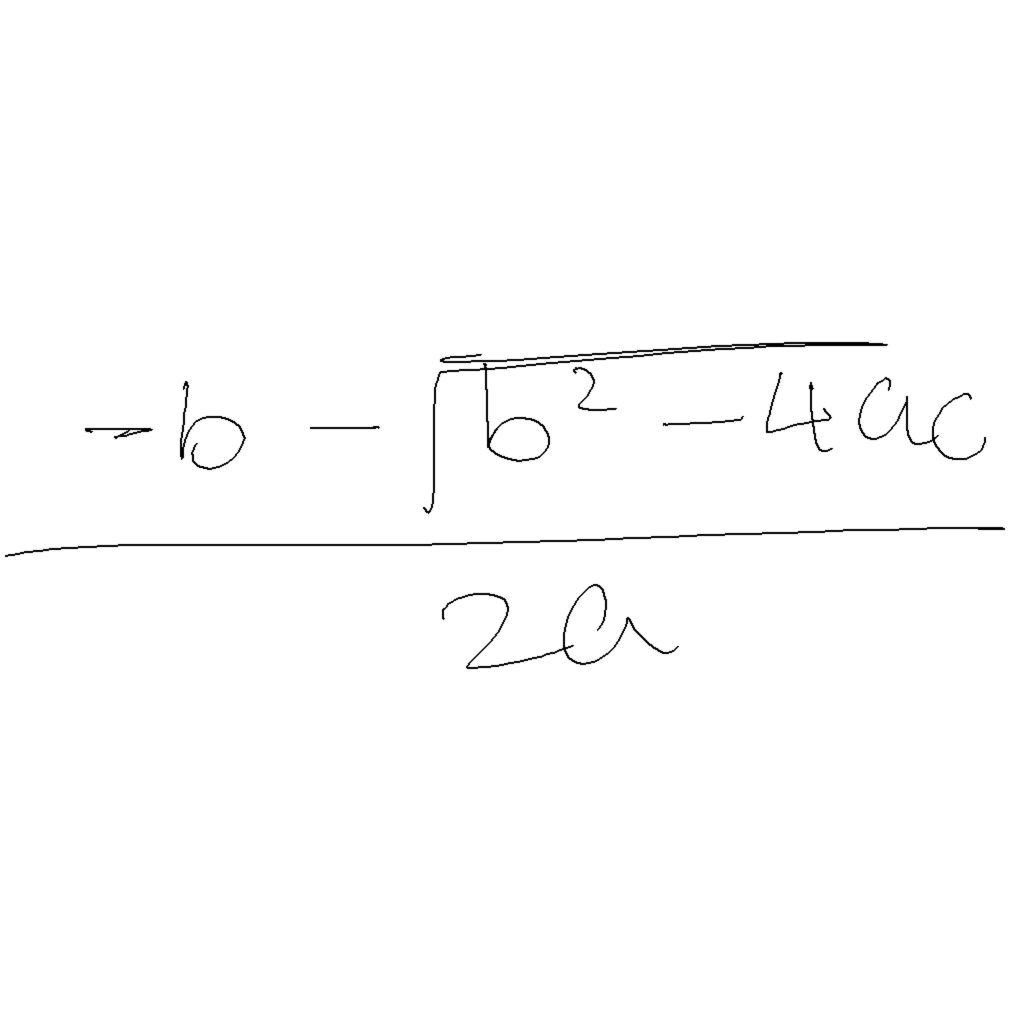 -b - √(b² - 4ac)
2a